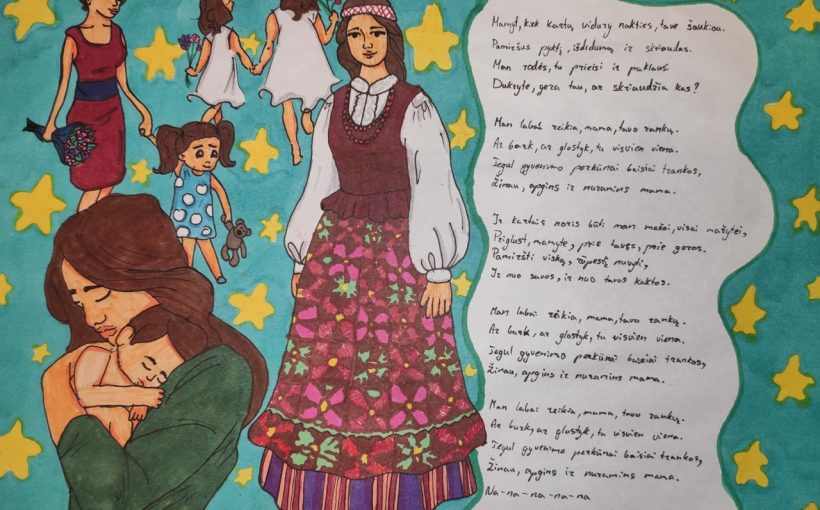 Mamyt, kiek kartų vidury nakties, tave šaukiau.
Pamiršus pyktį, išdidumą ir skriaudas.
Man rodės, tu prieisi ir paklausi:
Dukryte, gera tau, ar skriaudžia kas?
Man labai reikia, mama, tavo rankų.
Ar bark, ar glostyk, tu visvien viena.
Tegul gyvenimo perkūnai baisiai trankos,
Žinau, apgins ir nuramins mama.
Ir kartais noris būti man mažai, visai mažytei,
Priglust, mamyte, prie tavęs, prie geros.
Pamiršti viską, rūpestį nuvyti,
Ir nuo savos, ir nuo tavos kaktos.
Man labai reikia, mama, tavo rankų.
Ar bark, ar glostyk, tu visvien viena.
Tegul gyvenimo perkūnai baisiai trankos,
Žinau, apgins ir nuramins mama.
Man labai reikia, mama, tavo rankų.
Ar bark, ar glostyk, tu visvien viena.
Tegul gyvenimo perkūnai baisiai trankos,
Žinau, apgins ir nuramins mama.
Na-na-na-na-na